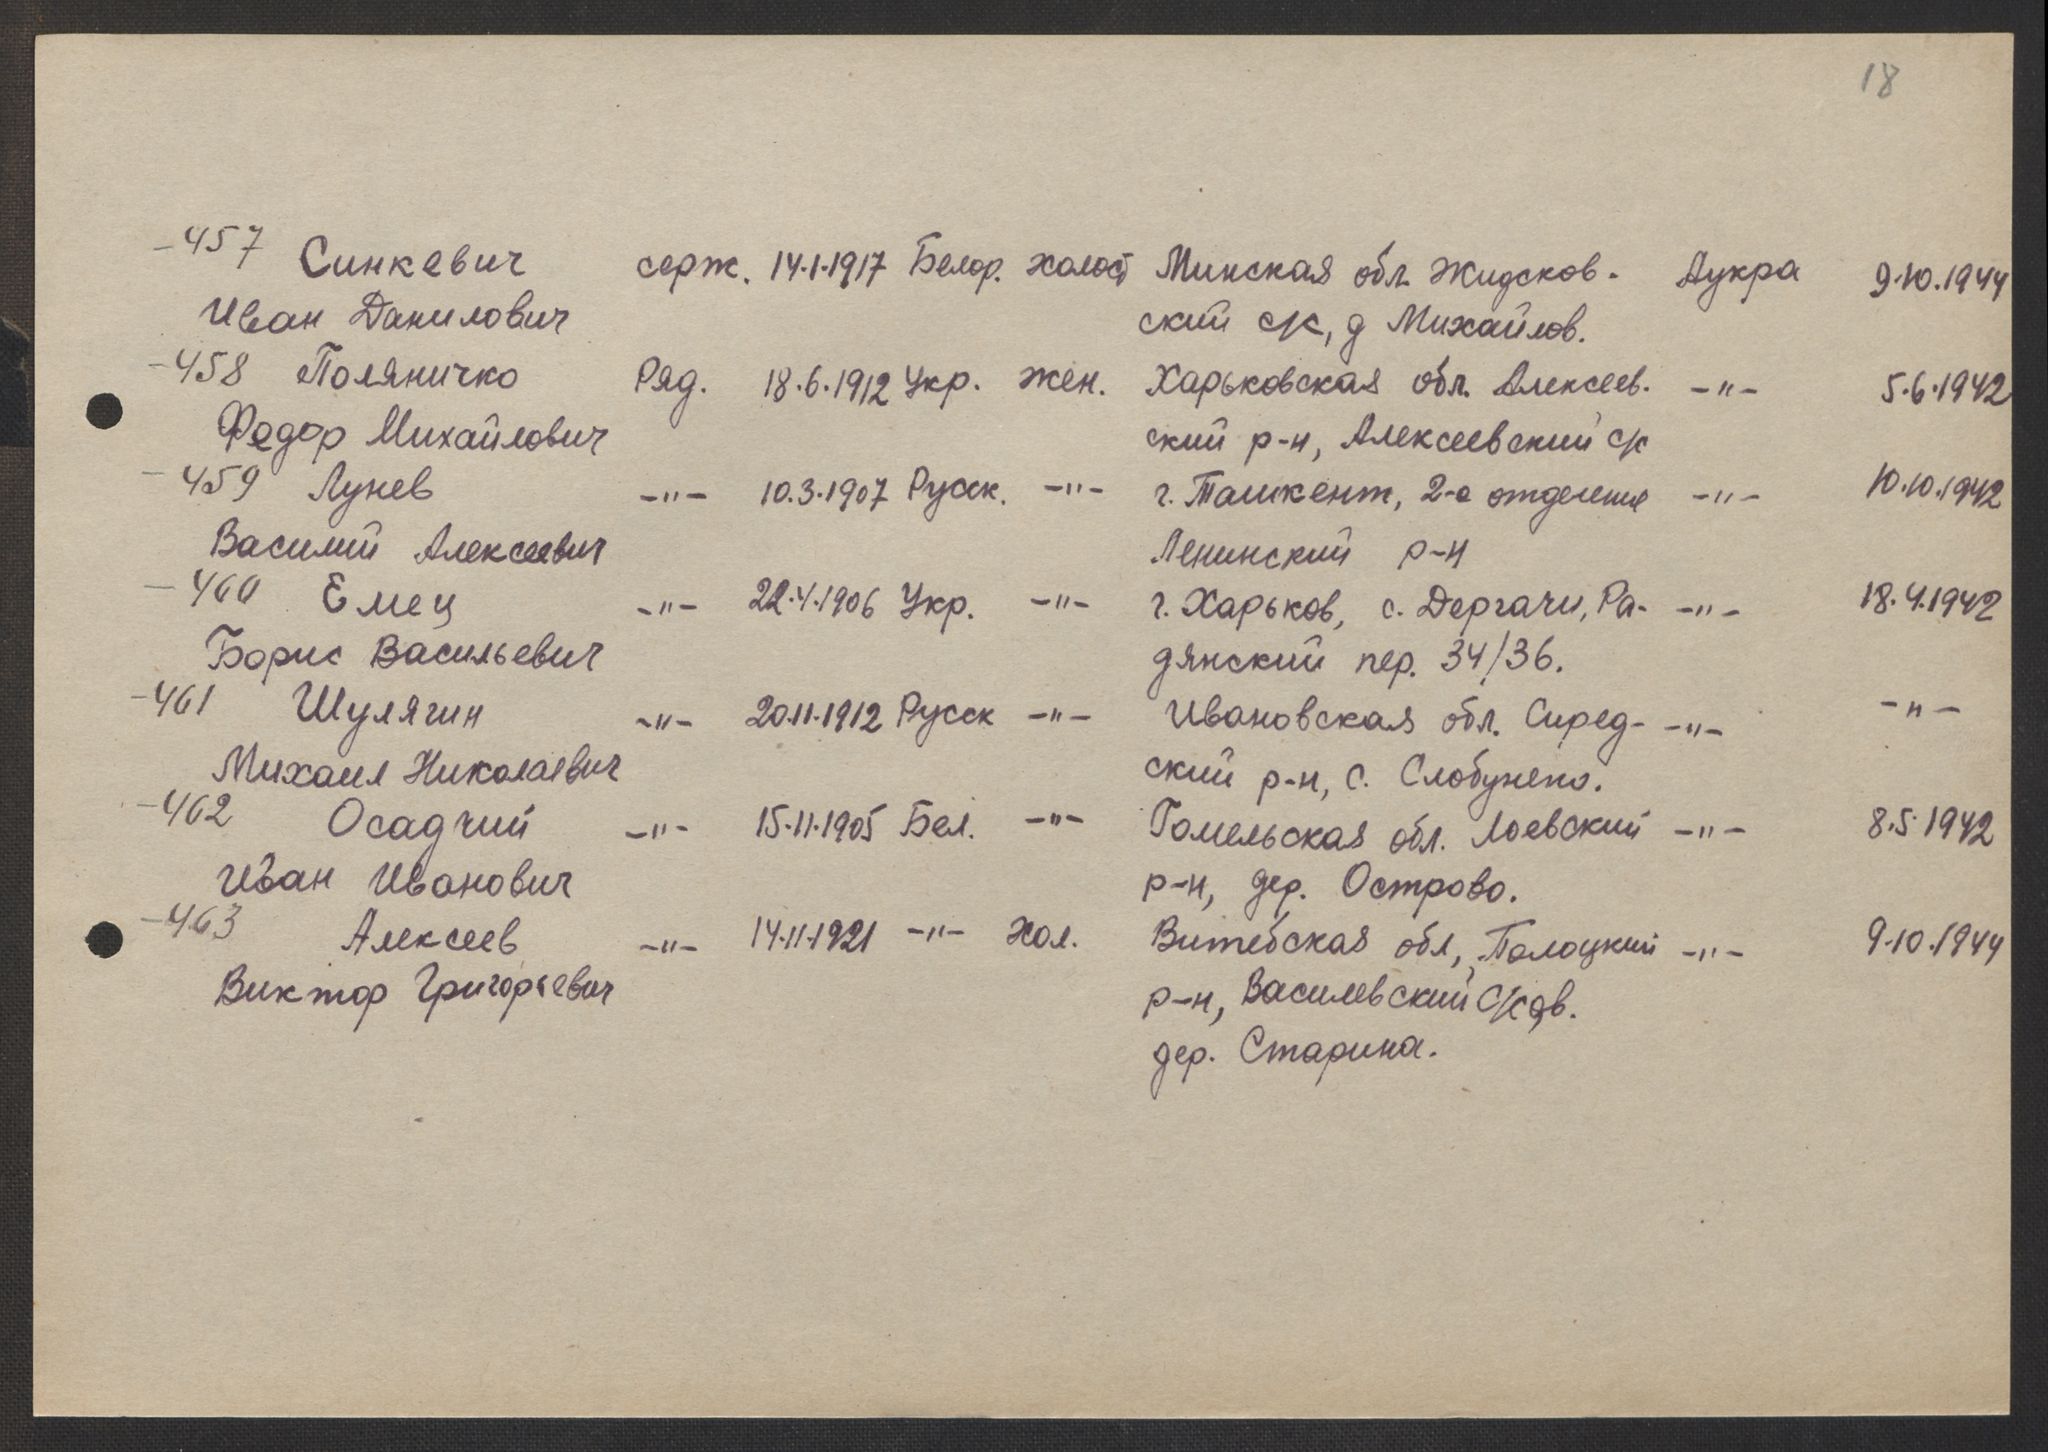 18
-457 Синкевич серж. 14.1.1917 Белор. холост Минская обл. Жидсков- Аукра 9.10.1944
Иван Данилович ский с/с, д Михайлов.
-458 Поляничко Ряд. 18.6.1912 Укр. Жен. Харьковская обл. Алексеев- -"- 5.6.1942
Федор Михайлович ский р-н, Алексеевский с/с
-459 Лунев -"- 10.3.1907 Русск. -"- г. Ташкент, 2-е отделение -"- 10.10.1942
Василий Алексеевич Ленинский р-н
-460 Емец -"- 22.4.1906 Укр. -"- г. Харьков, с. Дергачи, Ра- -"- 18.4.1942
Борис Васильевич дянский пер. 34/36.
-461 Шулягин -"- 20.11.1912 Русск -"- Ивановская обл. Серед- -"- -"-
Михаил Николаевич ский р-н, с.
-462 Осадчий -"- 15.11.1905 Бел. -"- Гомельская обл. Лоевский -"- 8.5.1942
Иван Иванович р-н, дер. Острово.
-463 Алексеев -"- 14.11.1921 -"- Хол. Витебская обл, Полоцкий -"- 9.10.1944
Виктор Григорьевич р-н, Василевский
дер. Старина.